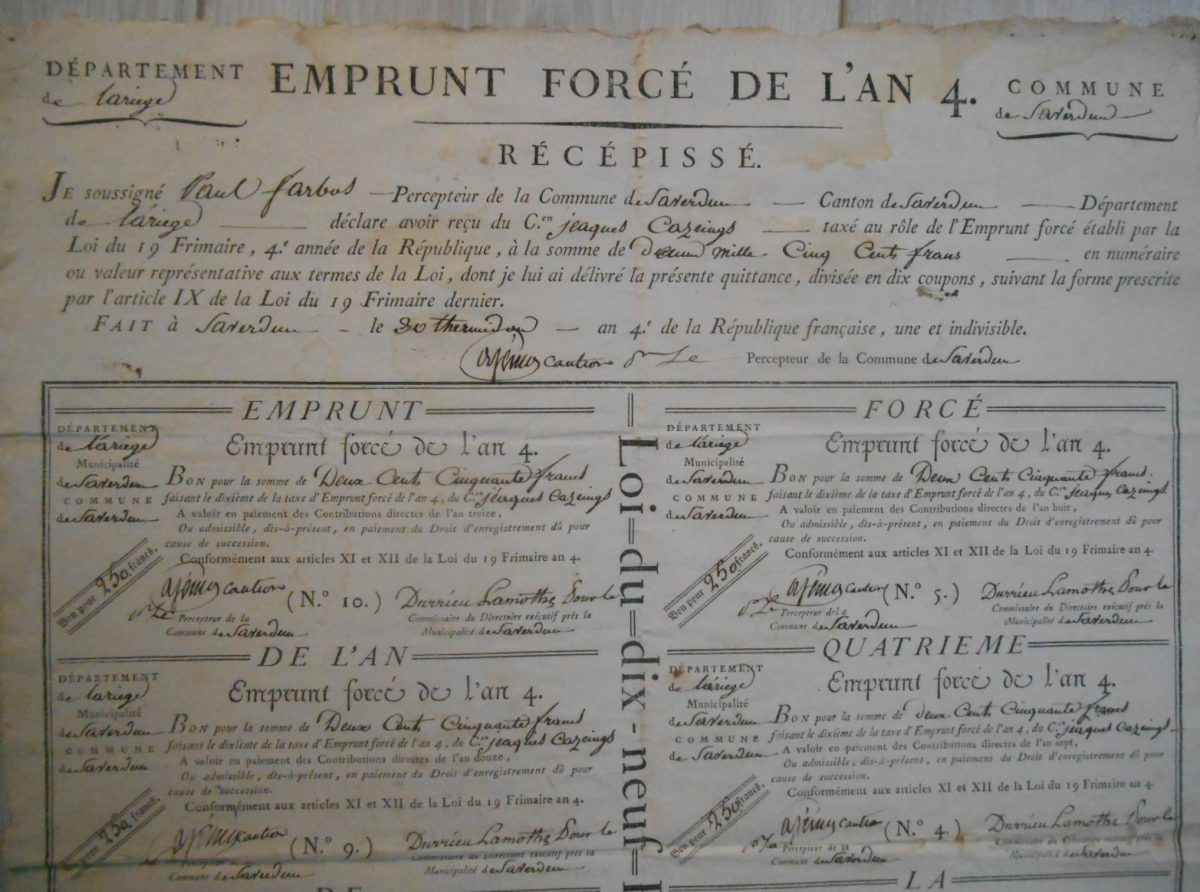 DÉPARTEMENT
de lariege
EMPRUNT FORCÉ DE L'AN 4.
COMMUNE
de Saverdun
RÉCÉPISSÉ.
JE soussigné Paul farbos Percepteur de la Commune de Saverdun Canton de Saverdun Département
de lariege déclare avoir reçu du C.en jeaques Cazeings taxé au rôle de l'Emprunt forcé établi par la
Loi du 19 Frimaire, 4.e année de la République, à la somme de mille Cinq Cents frans en numéraire
ou valeur représentative aux termes de la Loi, dont je lui ai délivré la présente quittance, divisée en dix coupons, suivant la forme prescrite
par l'article IX de la Loi du 19 Frimaire dernier.
FAIT à Saverdun le 30 thermidor an 4.e de la République française, une et indivisible.
caution Percepteur de la Commune de Saverdun
EMPRUNT
DÉPARTEMENT
de l'ariege
Municipalité
de Saverdun
COMMUNE
de Saverdun
Emprunt forcé de l'an 4.
BON pour la somme de Deux Cents Cinquante frans
faisant le dixième de la taxe d'Emprunt forcé de l'an 4, du C.en jeaques Cazeings
A valoir en paiement des Contributions directes de l'an treize,
Ou admissible, dès-à-présent, en paiement du Droit d'enregistrement dû pour
cause de succession.
Conformément aux articles XI et XII de la Loi du 19 Frimaire an 4.
Bon pour 250 francs.
caution (N.° 10.) Durrieu Lamothe Pour le
Percepteur de la
Commune de Saverdun
Commissaire du Directoire exécutif près la
Municipalité de Saverdun
FORCÉ
DÉPARTEMENT
de l'ariege
Municipalité
de Saverdun
COMMUNE
de Saverdun
Emprunt forcé de l'an 4.
BON pour la somme de Deux Cents Cinquante frans.
faisant le dixième de la taxe d'Emprunt forcé de l'an 4, du C.en jeaques Cazeings
A valoir en paiement des Contributions directes de l'an huit,
Ou admissible, dès-à-présent, en paiement du Droit d'enregistrement dû pour
cause de succession.
Conformément aux articles XI et XII de la Loi du 19 Frimaire an 4.
Bon pour 250 francs.
caution (N.° 5.) Durrieu Lamothe Pour le
Percepteur de la
Commune de Saverdun
Commissaire du Directoire exécutif près la
Municipalité de Saverdun
Loi-du-dix-neuf-
DE L'AN
DÉPARTEMENT
de lariege
Municipalité
de Saverdun
COMMUNE
de Saverdun
Emprunt forcé de l'an 4.
BON pour la somme de Deux Cents Cinquante frans
faisant le dixième de la taxe d'Emprunt forcé de l'an 4, du C.en jeaques Cazeings
A valoir en paiement des Contributions directes de l'an douze,
Ou admissible, dès-à-présent, en paiement du Droit d'enregistrement dû pour
cause de succession.
Conformément aux articles XI et XII de la Loi du 19 Frimaire an 4.
Bon pour 250 francs.
caution (N.° 9.) Durrieu Lamothe Pour le
Percepteur de la
Commune de Saverdun
Commissaire du Directoire exécutif près la
Municipalité de Saverdun
QUATRIEME
DÉPARTEMENT
de lariege
Municipalité
de Saverdun
COMMUNE
de Saverdun
Emprunt forcé de l'an 4.
BON pour la somme de Deux Cents Cinquante frans
faisant le dixième de la taxe d'Emprunt forcé de l'an 4, du C.en jeaques Cazeings
A valoir en paiement des Contributions directes de l'an sept,
Ou admissible, dès-à-présent, en paiement du Droit d'enregistrement dû pour
cause de succession.
Conformément aux articles XI et XII de la Loi du 19 Frimaire an 4.
Bon pour 250 francs.
caution (N.° 4.) Durrieu Lamothe Pour le
Percepteur de la
Commune de Saverdun
Commissaire du Directoire exécutif près la
Municipalité de Saverdun
DE
LA